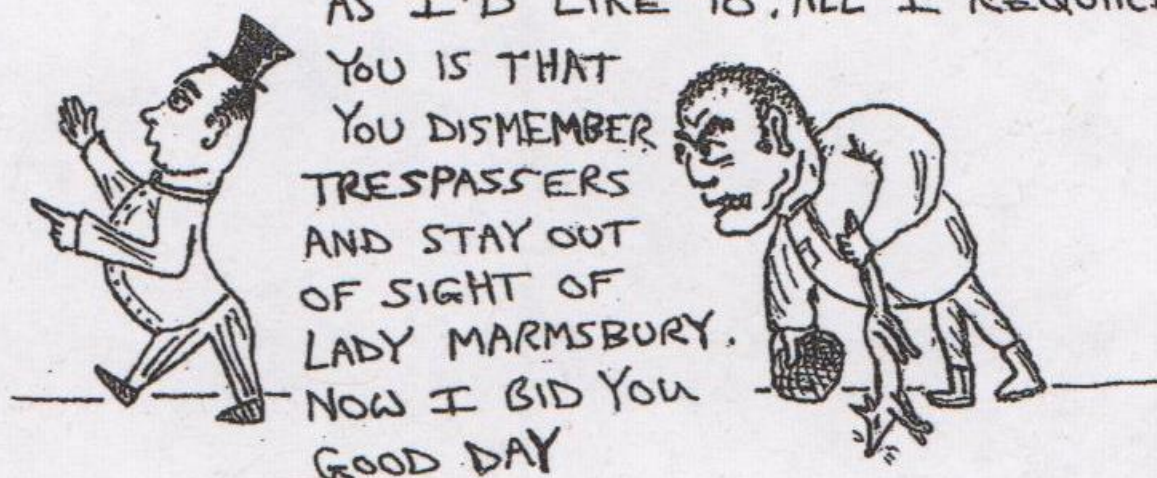 AS I'D LIKE TO. ALL I REQUIRE
YOU IS THAT
YOU DISMEMBER
TRESPASSERS
AND STAY OUT
OF SIGHT OF
LADY MARMSBURY.
NOW I BID YOU
GOOD DAY